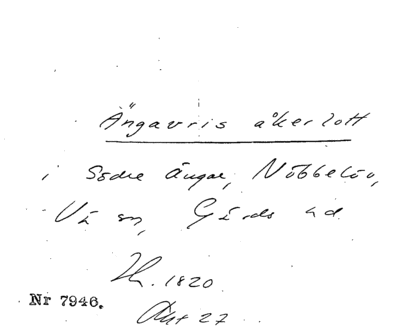 Ängavris åkerlott
i Södre Ängar, Nöbbelöv,
Vä sn, Gärds hd
Hr. 1820
Nr 7946.
Akt 27